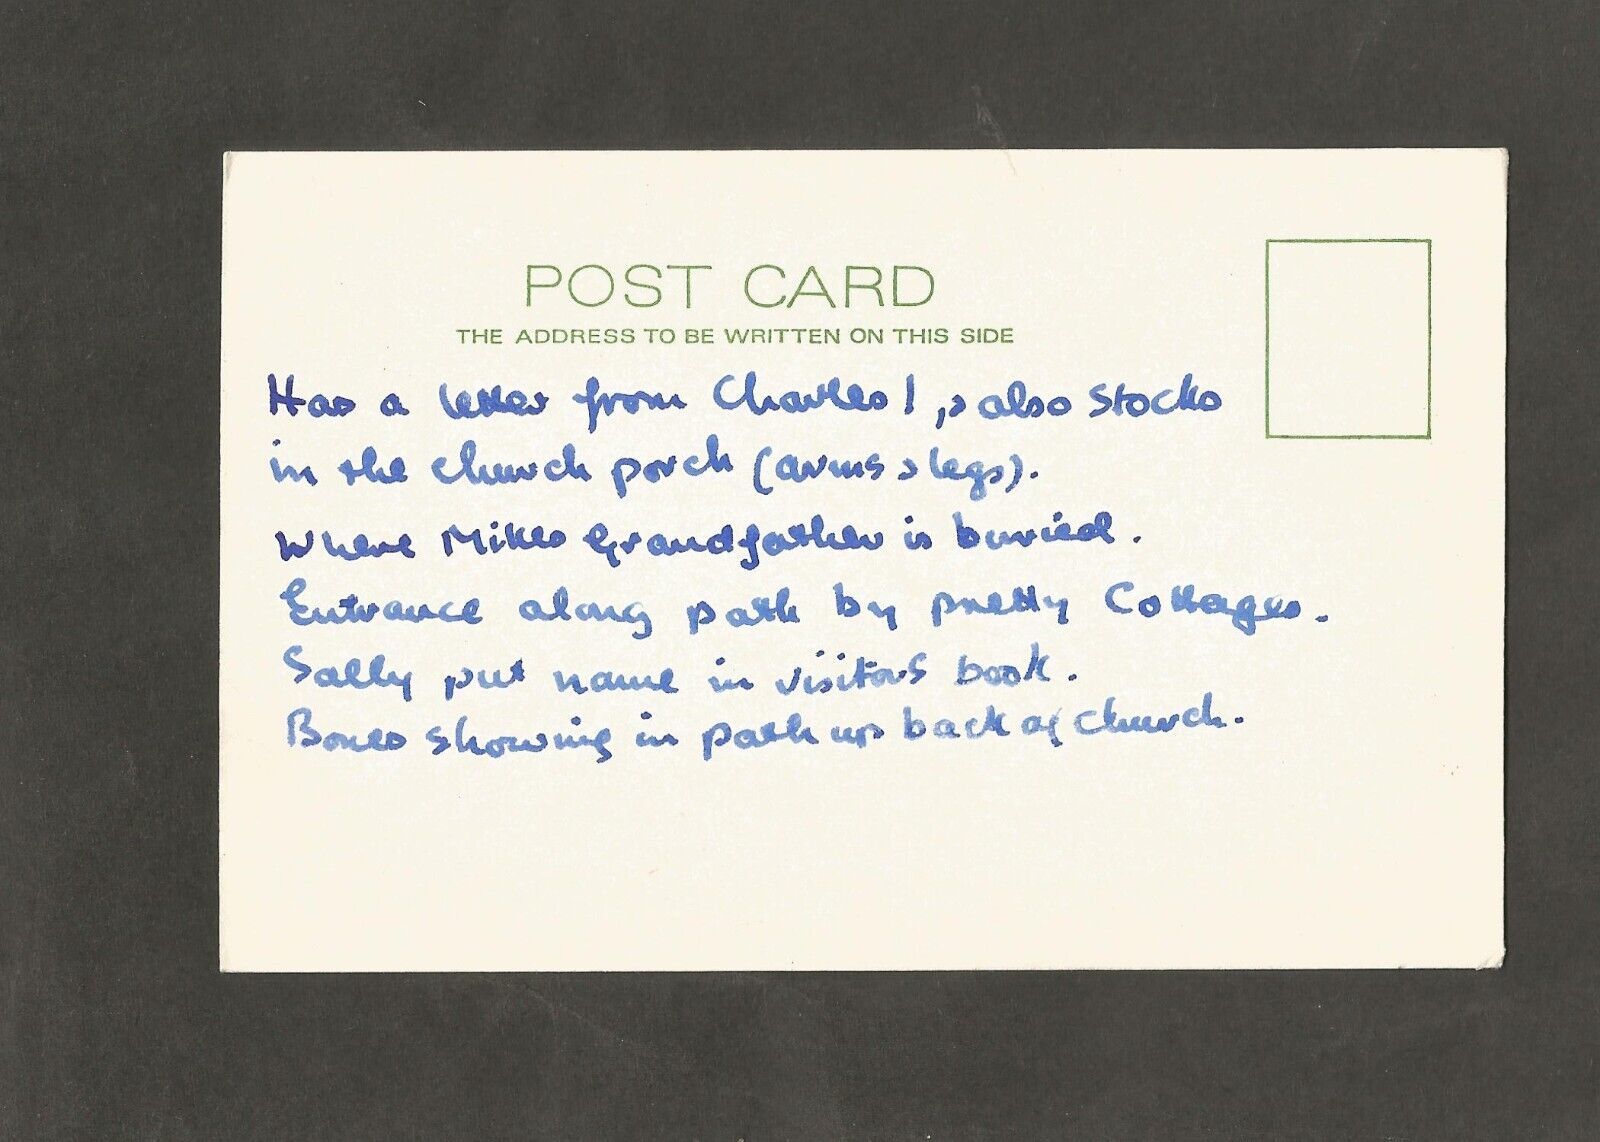 POST CARD
THE ADDRESS TO BE WRITTEN ON THIS SIDE
Has a letter from Charles I, & also Stocks
in the church porch (arms & legs).
Where Mikes Grandfather is buried.
Entrance along path by pretty Cottages.
Sally put name in visitors book.
Bones showing in path up back of church.